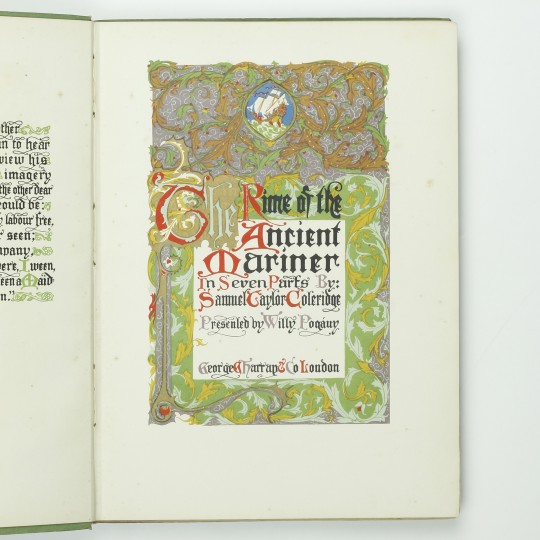 ther
n to hear
view his
imagery
the other dear
ould be:
labour free,
seen;
mpany,
were, I ween,
een a Maid
n."
The Rime of the
Ancient
Mariner
In Seven Parts By:
Samuel Taylor Coleridge
Presented by Willy Pogány
George G Harrap & Co London